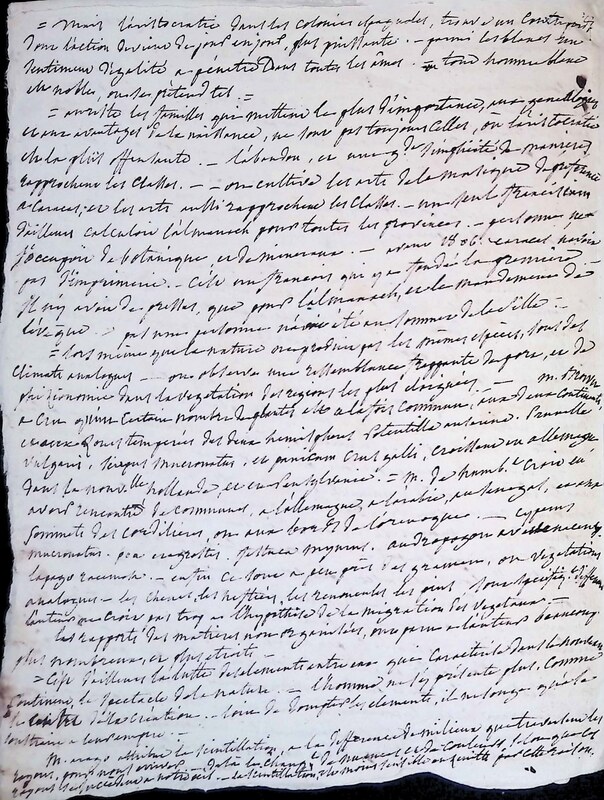 = Mais l'aristocratie dans les colonies espagnoles, trouve un Contrepoids
dont l'action devient de jour en jour, plus puissante. - parmi les blancs un
sentiment d'égalité a pénétré Dans toutes les ames. - tout homme blanc
est noble, ou se prétend tel. =
= au reste les familles qui mettent le plus d'importance, aux genealogies
et aux avantages de la naissance, ne sont pas toujours Celles, où l'aristocratie
est la plus offensante. - l'abandon, et une gde simplicité de manieres
rapprochent les Classes. - - on cultive les arts de la musique de preference
a Caracas; et les arts aussi rapprochent les Classes. - un seul franciscain
d'ailleurs calculoit l'almanach pour toutes les provinces. - personne ne
s'occupoit de botanique, et de mineraux. - avant 1806. caracas n'avoit
pas d'imprimerie. - C'est un françois qui y a fondé la premiere -
Il n'y avoit de presses, que pour l'almanach, et le mandement de
l'eveque - pas une personne n'avoit été au sommet de la Silla -
= lors meme que la nature ne produit pas les mêmes especes, sous des
Climats analogues - on observe une ressemblance frappante de port, et de
phisionomie dans la vegetation des regions les plus eloignées. - M. Brown
a cru qu'un Certain nombre de plantes est a la fois commun, aux deux Continents,
et aux Zones temperées des deux hemispheres Potentille anserine. Prunelle
vulgaris, Scirpus mucronatus, et panicum Crus galli, croissent en allemagne
dans la nouvlle hollande, et en Pensylvanie. = M. de humbt. Croit en
avoir rencontré de Communes, a l'allemagne, a l'arabie, au Senegal, et aux
Sommets des Cordilieres, ou aux bords de l'orenoque. - Cyperus
mucronatus. poa eragrostis.
- enfin Ce sont a peu près des gramens, ou végétations
analogues - les chenes, les hêtres, les renoncules, les pins
l'auteur ne Croit pas trop a l'hypothèse de la migration des Vegetaux. -
les rapports des matieres non organisées, ont paru a l'auteur beaucoup
plus nombreux, et plus etroits. -
= C'est d'ailleurs la lutte des elements entre eux qui Caractérise dans le nouveau
Continent, le spectacle de la nature. - l'homme ne s'y présente plus, Comme
le Centre de la Création. - loin de Dompter les elements, il ne songe que se
soustraire a leur empire -
M. arago attribue la scintillation, a la difference de milieux que traversent les
rayons, pour nous arriver. - De la les Changts de nuances et de Couleurs,